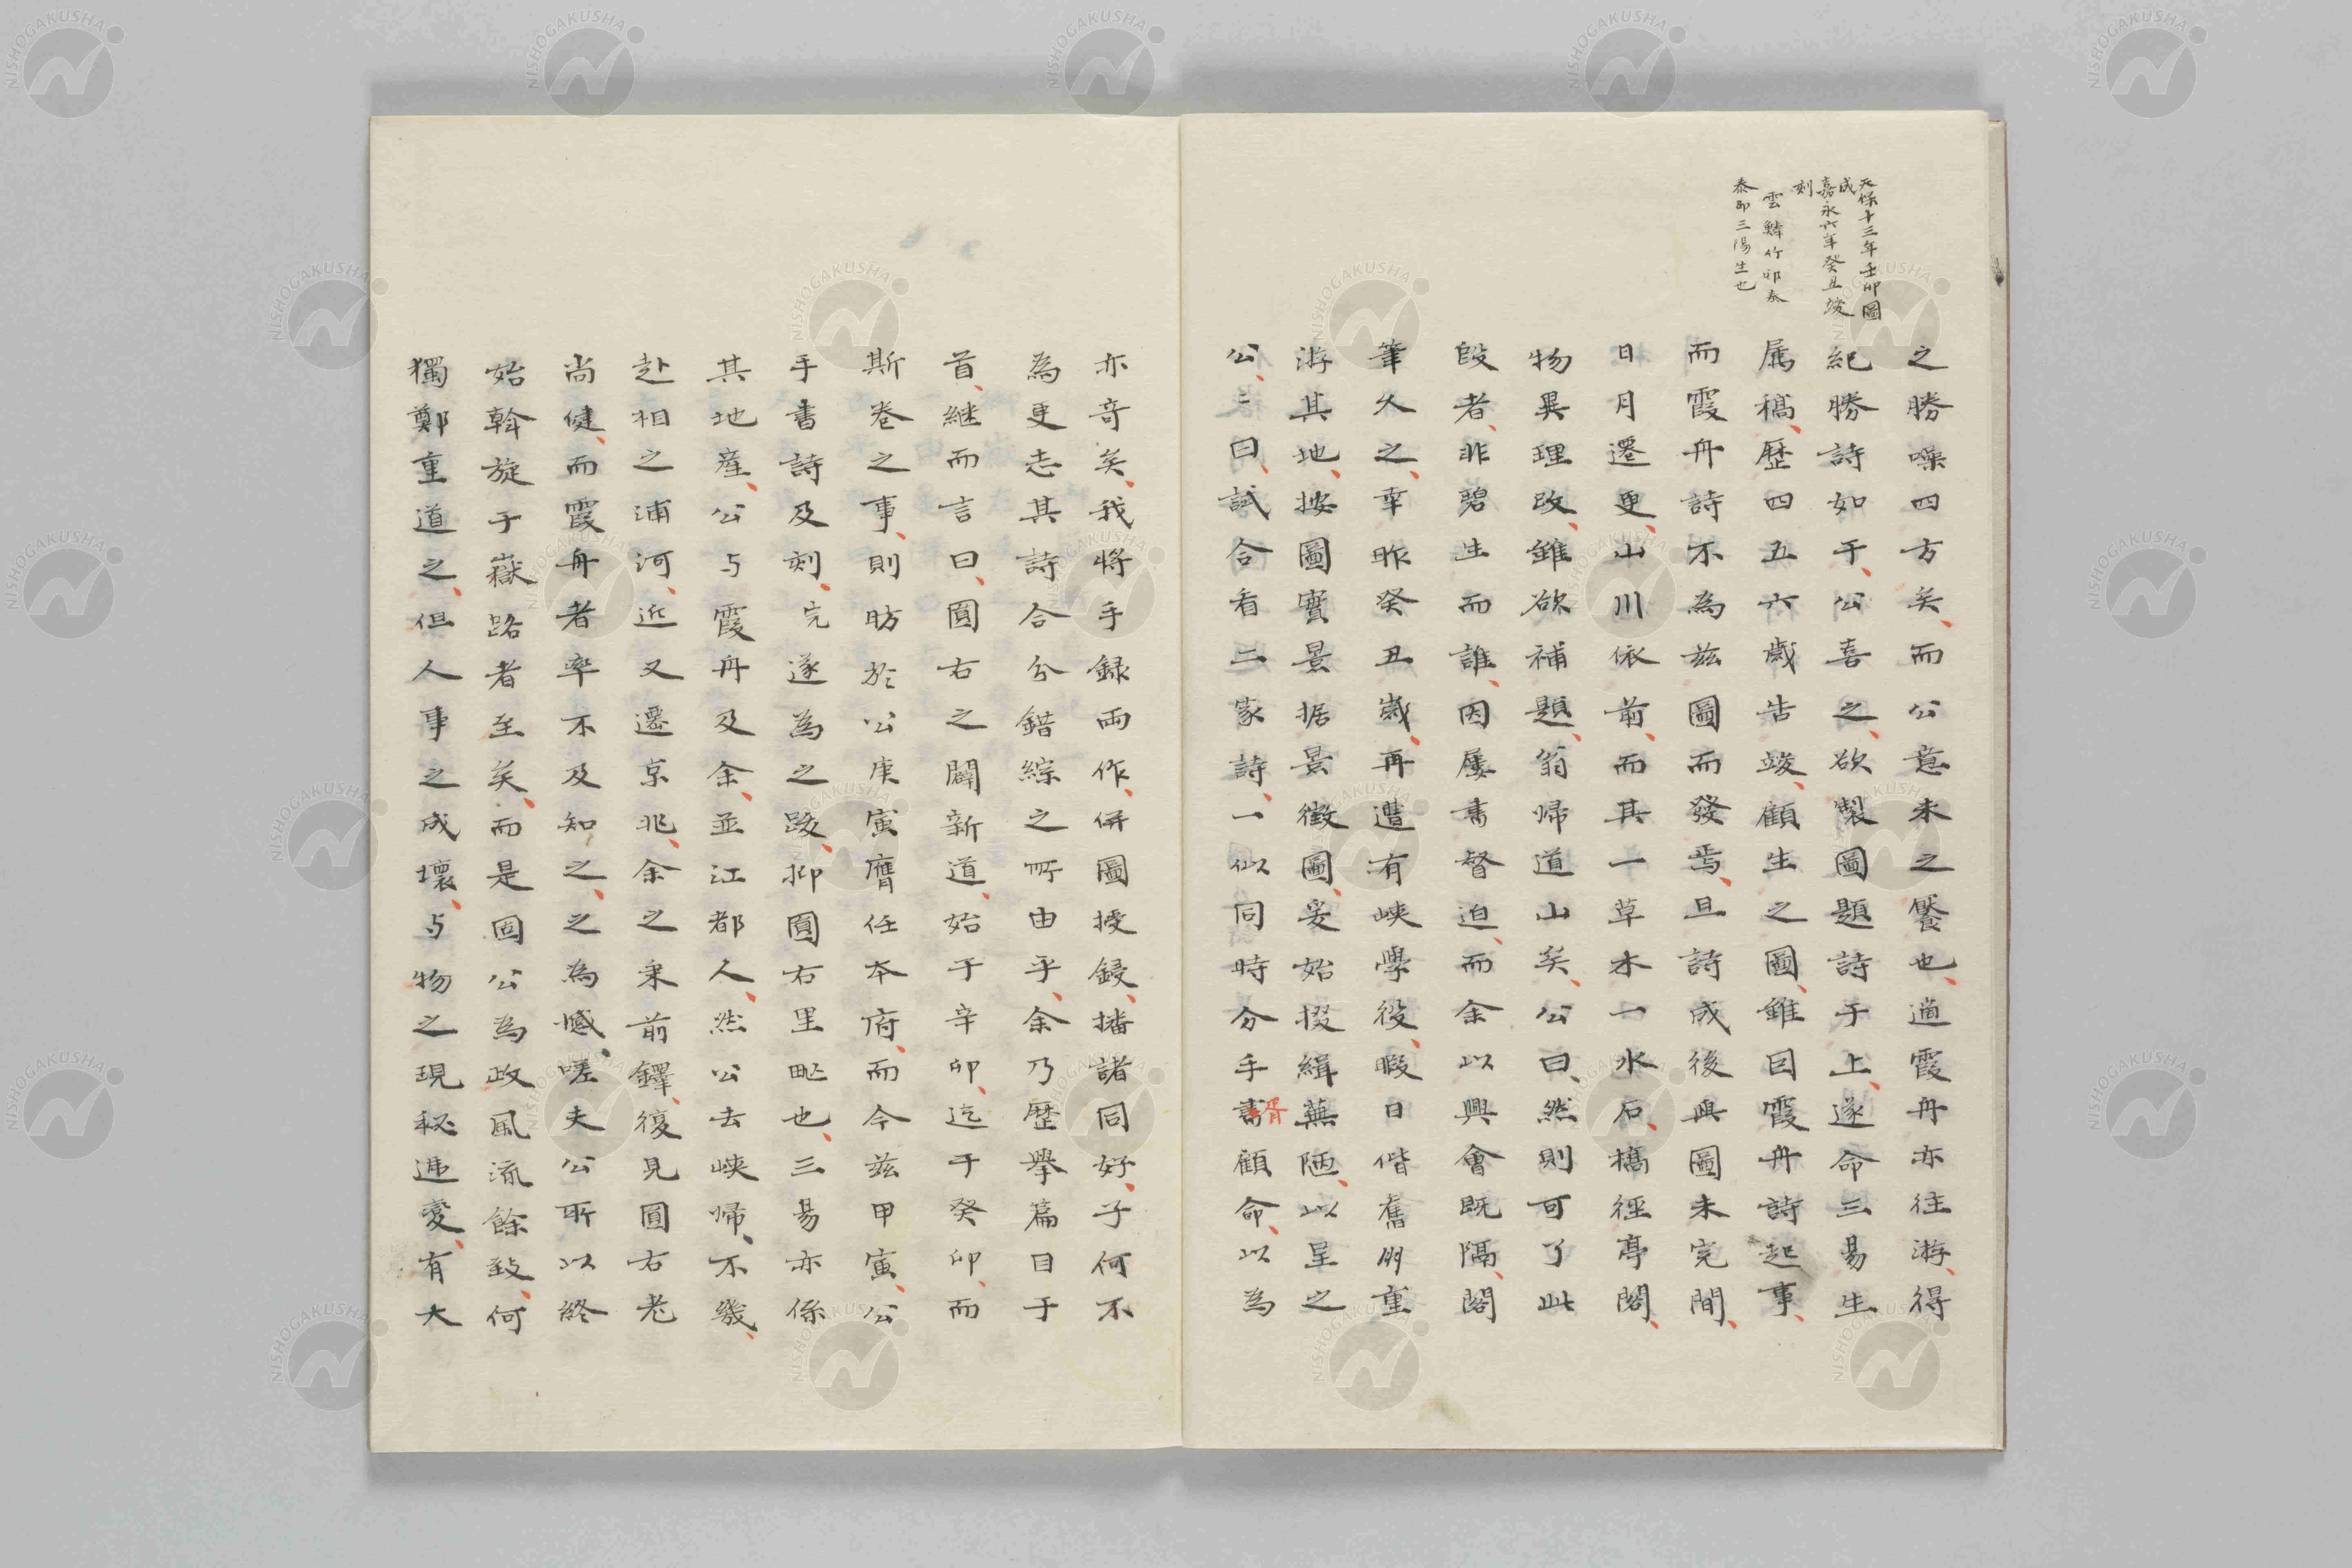 天保十三年壬卯圖
成
嘉永六年癸丑竣
刻
雲鱗竹邨泰
泰即三陽生也
之勝噪四方矣、而公意未之饜也、適霞舟亦往游、得
紀勝詩如干、公喜之、欲製圖題詩于上、遂命三昜生
属稿、歷四五六歲告竣、顧生之圖、雖因霞舟詩起事、
而霞舟詩不為茲圖而發焉、且詩成後與圖未完間、
日月遷更、山川依前、而其一草木一水石、橋徑亭閣、
物異理改、雖欲補題、翁帰道山矣、公曰、然則可了此
段者、非碧生而誰、因屢書督迫、而余以興會既隔、閣
筆久之、幸昨癸丑歲、再遭有峡學役、暇日偕舊朋重
游其地、按圖實景据景徵圖、爰始掇緝蕪陋、以呈之
公、〻曰、試合看二家詩、一似同時分手書胥顧命、以為
亦奇矣、我将手録両作、併圖授鋟、播諸同好、子何不
為更志其詩合分錯綜之所由乎、余乃歷擧篇目于
首、継而言曰、圓右之闢新道、始于辛卯、迄于癸卯、而
斯卷之事、則昉於公庚寅膺任本府、而今茲甲寅、公
手書詩及刻、完遂為之跋、抑圓右里毗也、三昜亦係
其地產、公与霞舟及余、並江都人、然公去峡帰、不幾、
赴相之浦河、近又遷京兆、余之来前鐸、復見圓右老
尚健、而霞舟者率不及知之、之為憾、嗟夫公所以終
始斡旋于嶽路者至矣、而是固公為政風流餘致、何
獨鄭重道之、但人事之成壞、与物之現秘遞変、有大